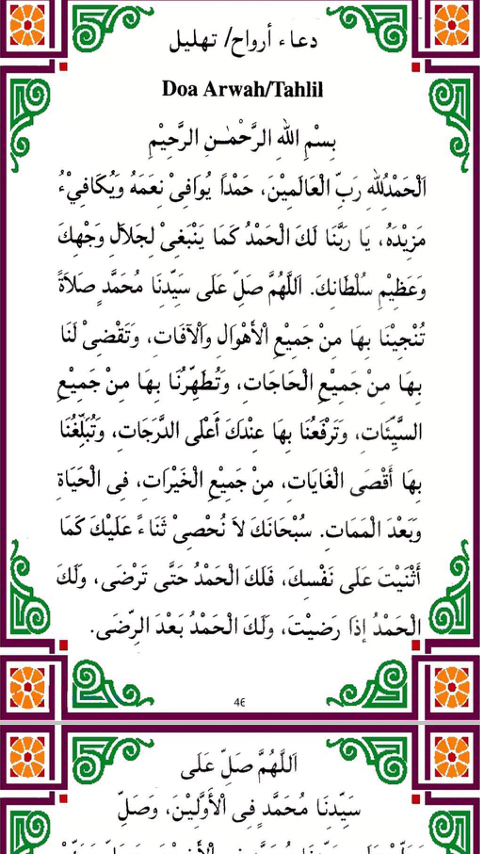 دعاء أرواح/ تهليل
Doa Arwah/Tahlil
بِسْمِ اللهِ الرَّحْمٰنِ الرَّحِيْمِ
اَلْحَمْدُلِلّٰهِ رَبِّ الْعَالَمِيْنَ، حَمْدًا يُوَافِىْ نِعَمَهُ وَيُكَافِيْءُ
مَزِيْدَهُ، يَا رَبَّنَا لَكَ الْحَمْدُ كَمَا يَنْبَغِىْ لِجَلَالِ وَجْهِكَ
وَعَظِيْمِ سُلْطَانِكَ. اَللّٰهُمَّ صَلِّ عَلَى سَيِّدِنَا مُحَمَّدٍ صَلَاةً
تُنْجِيْنَا بِهَا مِنْ جَمِيْعِ الْأَهْوَالِ وَالْآفَاتِ، وَتَقْضِىْ لَنَا
بِهَا مِنْ جَمِيْعِ الْحَاجَاتِ، وَتُطَهِّرُنَا بِهَا مِنْ جَمِيْعِ
السَّيِّئَاتِ، وَتَرْفَعُنَا بِهَا عِنْدَكَ أَعْلَى الدَّرَجَاتِ، وَتُبَلِّغُنَا
بِهَا أَقْصَى الْغَايَاتِ، مِنْ جَمِيْعِ الْخَيْرَاتِ، فِى الْحَيَاةِ
وَبَعْدَ الْمَمَاتِ. سُبْحَانَكَ لَا نُحْصِىْ ثَنَاءً عَلَيْكَ كَمَا
أَثْنَيْتَ عَلَى نَفْسِكَ، فَلَكَ الْحَمْدُ حَتَّى تَرْضَى، وَلَكَ
الْحَمْدُ إِذَا رَضِيْتَ، وَلَكَ الْحَمْدُ بَعْدَ الرِّضَى.
46
اَللّٰهُمَّ صَلِّ عَلَى
سَيِّدِنَا مُحَمَّدٍ فِى الْأَوَّلِيْنَ، وَصَلِّ